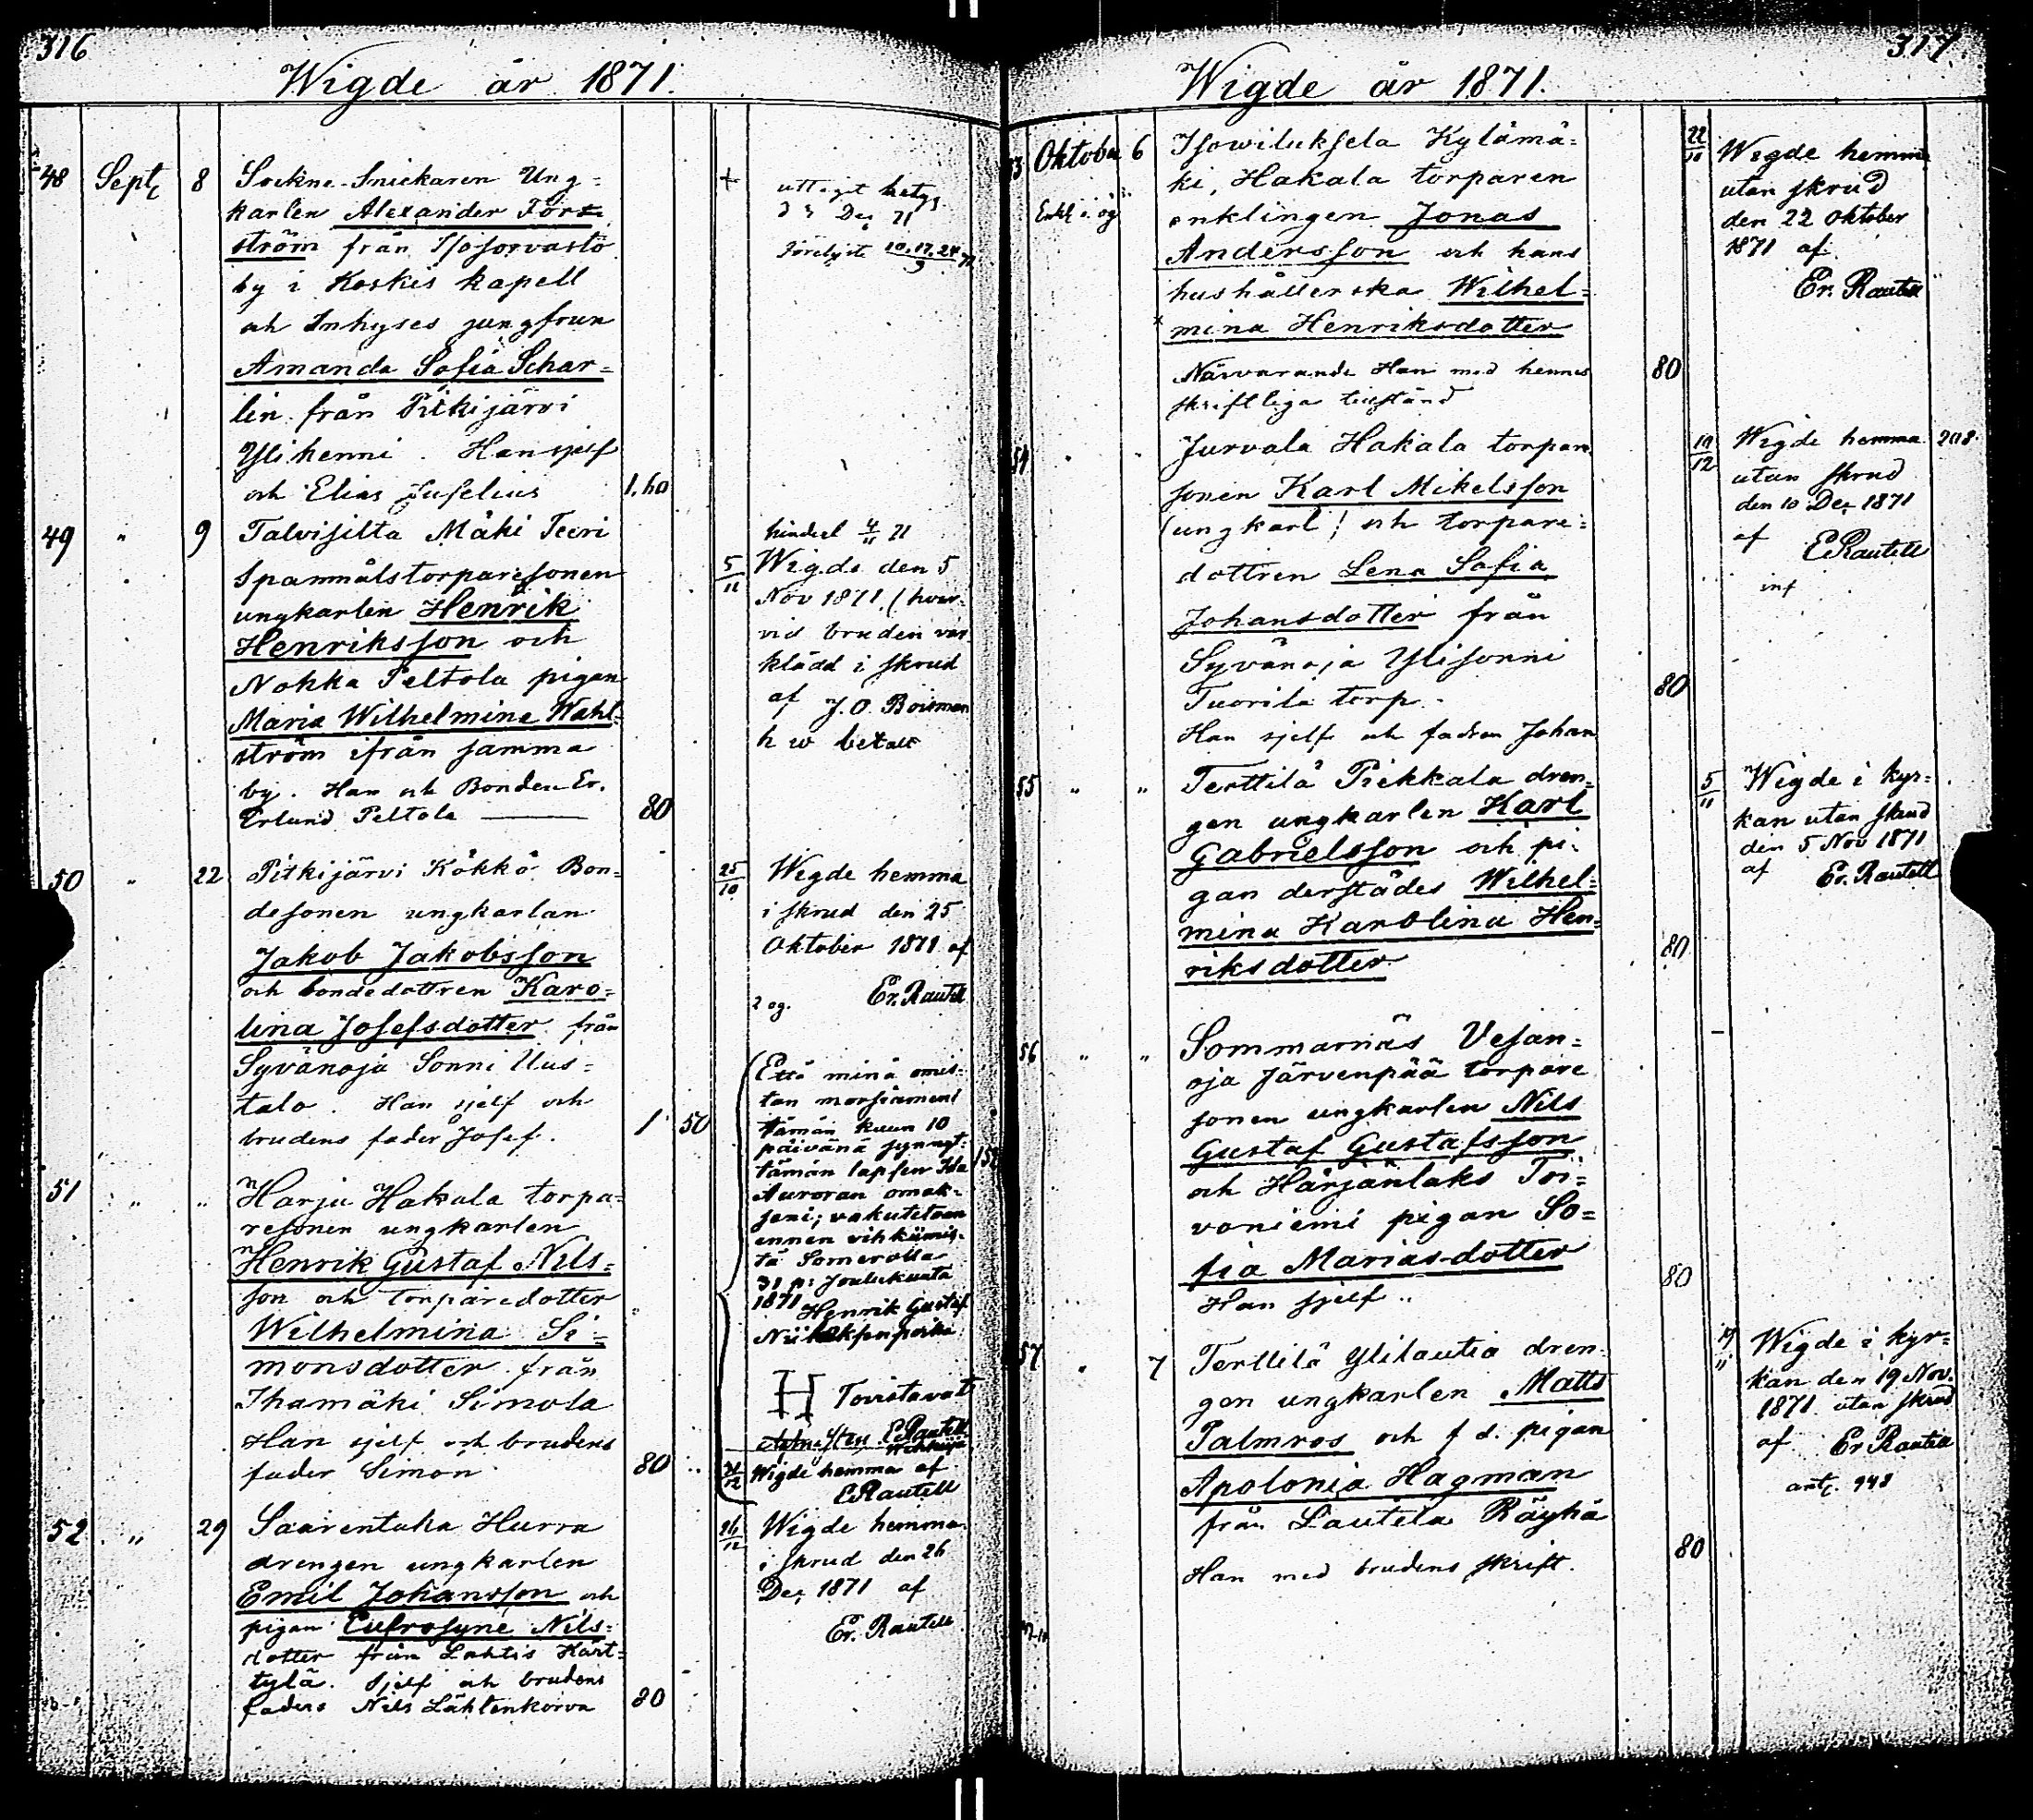 316
Wigde år 1871.
48 Sept. 8 Sockne-Snickaren Ung=
karlen Alexander Fors=
ström från
by i Koskis kapell
och Inhyses jungfrun
Amanda Sofia Schar=
lin från Pitkijärvi
Ylihenni. Han sjelf
och Elias Juselius 1.60
+ uttaget betyg
d 3 Dec 71
Förelyste 10.17.24/9 71
49 " 9 Talvisilta Mäki Teeri
Spannmålstorparesonen
ungkarlen Henrik
Henriksson och
Nokka Peltola pigan
Maria Wilhelmina Wahl=
ström ifrån samma
by. Han och Bonden Er.
Erlund Peltola — 80
hindrel 4/11 71
5/11 Wigde den 5
Nov 1871, (hvar-
vid bruden var
klädd i skrud
af J. O. Boisman
h w betalt
50 " 22 Pitkijärvi Kökkö Bon=
desonen ungkarlen
Jakob Jakobsson
och bondedottren Karo=
lina Josefsdotter från
Syvänoja Sonni Uus=
talo. Han sjelf och
brudens fader Josef. 1 50
25/10 Wigde hemma
i skrud den 25
Oktober 1871 af
2 og. Er. Rautell
51 " " Harju Hakala torpa=
resonen ungkarlen
Henrik Gustaf Nils=
son och torparedotter
Wilhelmina Si=
monsdotter från
Ihamäki Simola
Han sjelf och brudens
fader Simon 80
Että minä omis=
tan morsiameni
tämän kuun 10
päivänä synnyt=
tämän lapsen Ida 152
Auroran omak=
seni; vakutetaan
ennen vihkiimis=
tä Somerolla
31 p: Joulukuuta
1871 Henrik Gustaf
Niilaksenpoika
H Toivistavat
E Rautell
31/12 Wigde hemma af
E Rautell
52 " 29 Saarentaka Hurra
drengen ungkarlen
Emil Johansson och
pigan Eufrosyne Nils=
dotter från Lahtis Kärt=
tylä. Sjelf och brudens
faders Nils Lähtenkorva 80
26/12 Wigde hemma
i skrud den 26
Dec, 1871 af
Er. Rautell
317
Wigde år 1871.
53 Oktober 6 Isowiluksela Kylämä=
ki, Hakala torparen
Enkl. o. og enklingen Jonas
Andersson och hans
hushållerska Wilhel=
mina Henriksdotter
Närvarande Han med hennes 80
skriftliga tillstånd
22/10 Wigde hemma
utan skrud
den 22 Oktober
1871 af
Er. Rautell
54 " " Jurvala Hakala torpare
sonen Karl Mikelsson
(ungkarl) och torpare=
dottren Lena Sofia
Johansdotter från
Syvänoja Ylisonni
Tuorila torp. 80
Han sjelf och fadren Johan
10/12 Wigde hemma 208.
utan skrud
den 10 Dec 1871
af E Rautell
inf
55 " " Terttilä Piekkala dren=
gen ungkarlen Karl
Gabrielsson och pi=
gan derstädes Wilhel=
mina Karolina Hen= 80
riksdotter
5/11 Wigde i kyr=
kan utan skrud
den 5 Nov 1871
af Er. Rautell
56 " " Sommarnäs Vesan=
oja Järvenpää torpare
sonen ungkarlen Nils
Gustaf Gustafsson
och Härjänlaks Toi=
voniemi pigan So=
fia Mariasdotter 80
Han sjelf..
57 " 7 Terttilä Ylilautia dren=
gen ungkarlen Matts
Palmros och f d. pigan
Apolonia Hagman
från Lautela Räyhä 80
Han med brudens skrift.
19/11 Wigde i kyr=
kan den 19 Nov.
1871 utan skrud
af Er Rautell
ant. 948